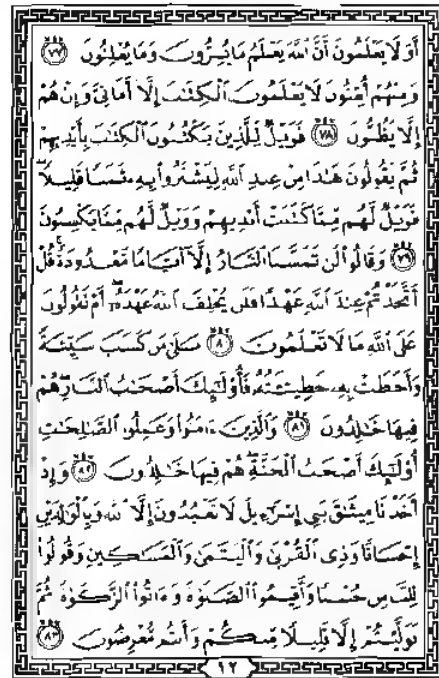 أَوَلَا يَعْلَمُونَ أَنَّ ٱللَّهَ يَعْلَمُ مَا يُسِرُّونَ وَمَا يُعْلِنُونَ ٧٧
وَمِنْهُمْ أُمِّيُّونَ لَا يَعْلَمُونَ ٱلْكِتَٰبَ إِلَّآ أَمَانِىَّ وَإِنْ هُمْ
إِلَّا يَظُنُّونَ ٧٨ فَوَيْلٌ لِّلَّذِينَ يَكْتُبُونَ ٱلْكِتَٰبَ بِأَيْدِيهِمْ
ثُمَّ يَقُولُونَ هَٰذَا مِنْ عِندِ ٱللَّهِ لِيَشْتَرُوا۟ بِهِۦ ثَمَنًا قَلِيلًا
فَوَيْلٌ لَّهُم مِّمَّا كَتَبَتْ أَيْدِيهِمْ وَوَيْلٌ لَّهُم مِّمَّا يَكْسِبُونَ
٧٩ وَقَالُوا۟ لَن تَمَسَّنَا ٱلنَّارُ إِلَّآ أَيَّامًا مَّعْدُودَةً قُلْ
أَتَّخَذْتُمْ عِندَ ٱللَّهِ عَهْدًا فَلَن يُخْلِفَ ٱللَّهُ عَهْدَهُۥٓ أَمْ تَقُولُونَ
عَلَى ٱللَّهِ مَا لَا تَعْلَمُونَ ٨٠ بَلَىٰ مَن كَسَبَ سَيِّئَةً
وَأَحَٰطَتْ بِهِۦ خَطِيٓـَٔتُهُۥ فَأُو۟لَٰٓئِكَ أَصْحَٰبُ ٱلنَّارِ هُمْ
فِيهَا خَٰلِدُونَ ٨١ وَٱلَّذِينَ ءَامَنُوا۟ وَعَمِلُوا۟ ٱلصَّٰلِحَٰتِ
أُو۟لَٰٓئِكَ أَصْحَٰبُ ٱلْجَنَّةِ هُمْ فِيهَا خَٰلِدُونَ ٨٢ وَإِذْ
أَخَذْنَا مِيثَٰقَ بَنِىٓ إِسْرَٰٓءِيلَ لَا تَعْبُدُونَ إِلَّا ٱللَّهَ وَبِٱلْوَٰلِدَيْنِ
إِحْسَانًا وَذِى ٱلْقُرْبَىٰ وَٱلْيَتَٰمَىٰ وَٱلْمَسَٰكِينِ وَقُولُوا۟
لِلنَّاسِ حُسْنًا وَأَقِيمُوا۟ ٱلصَّلَوٰةَ وَءَاتُوا۟ ٱلزَّكَوٰةَ ثُمَّ
تَوَلَّيْتُمْ إِلَّا قَلِيلًا مِّنكُمْ وَأَنتُم مُّعْرِضُونَ ٨٣
١٢